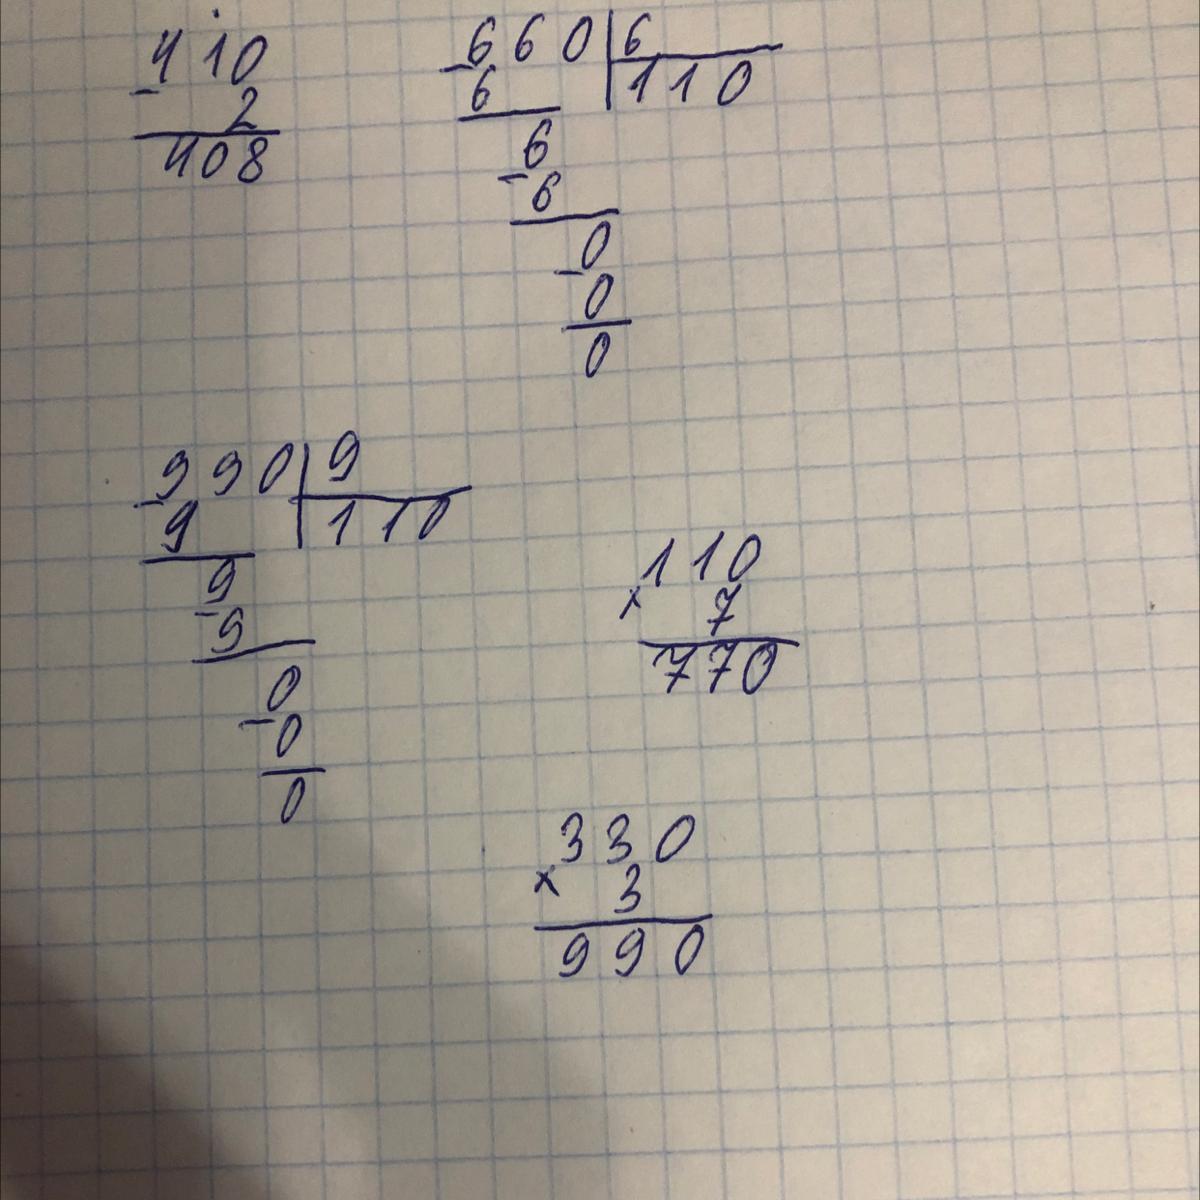 410
- 2
408
- 660 | 6
6 110
6
- 6
0
- 0
0
- 990 | 9
9 110
9
- 9
0
- 0
0
110
× 7
770
330
× 3
990